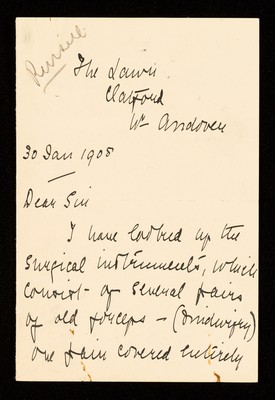 The Lawn
Clatford
Nr Andover
30 Jan 1908
Dear Sir
I have looked up the
surgical instruments, which
consist of several pairs
of old forceps - (midwifry)
one pair covered entirely